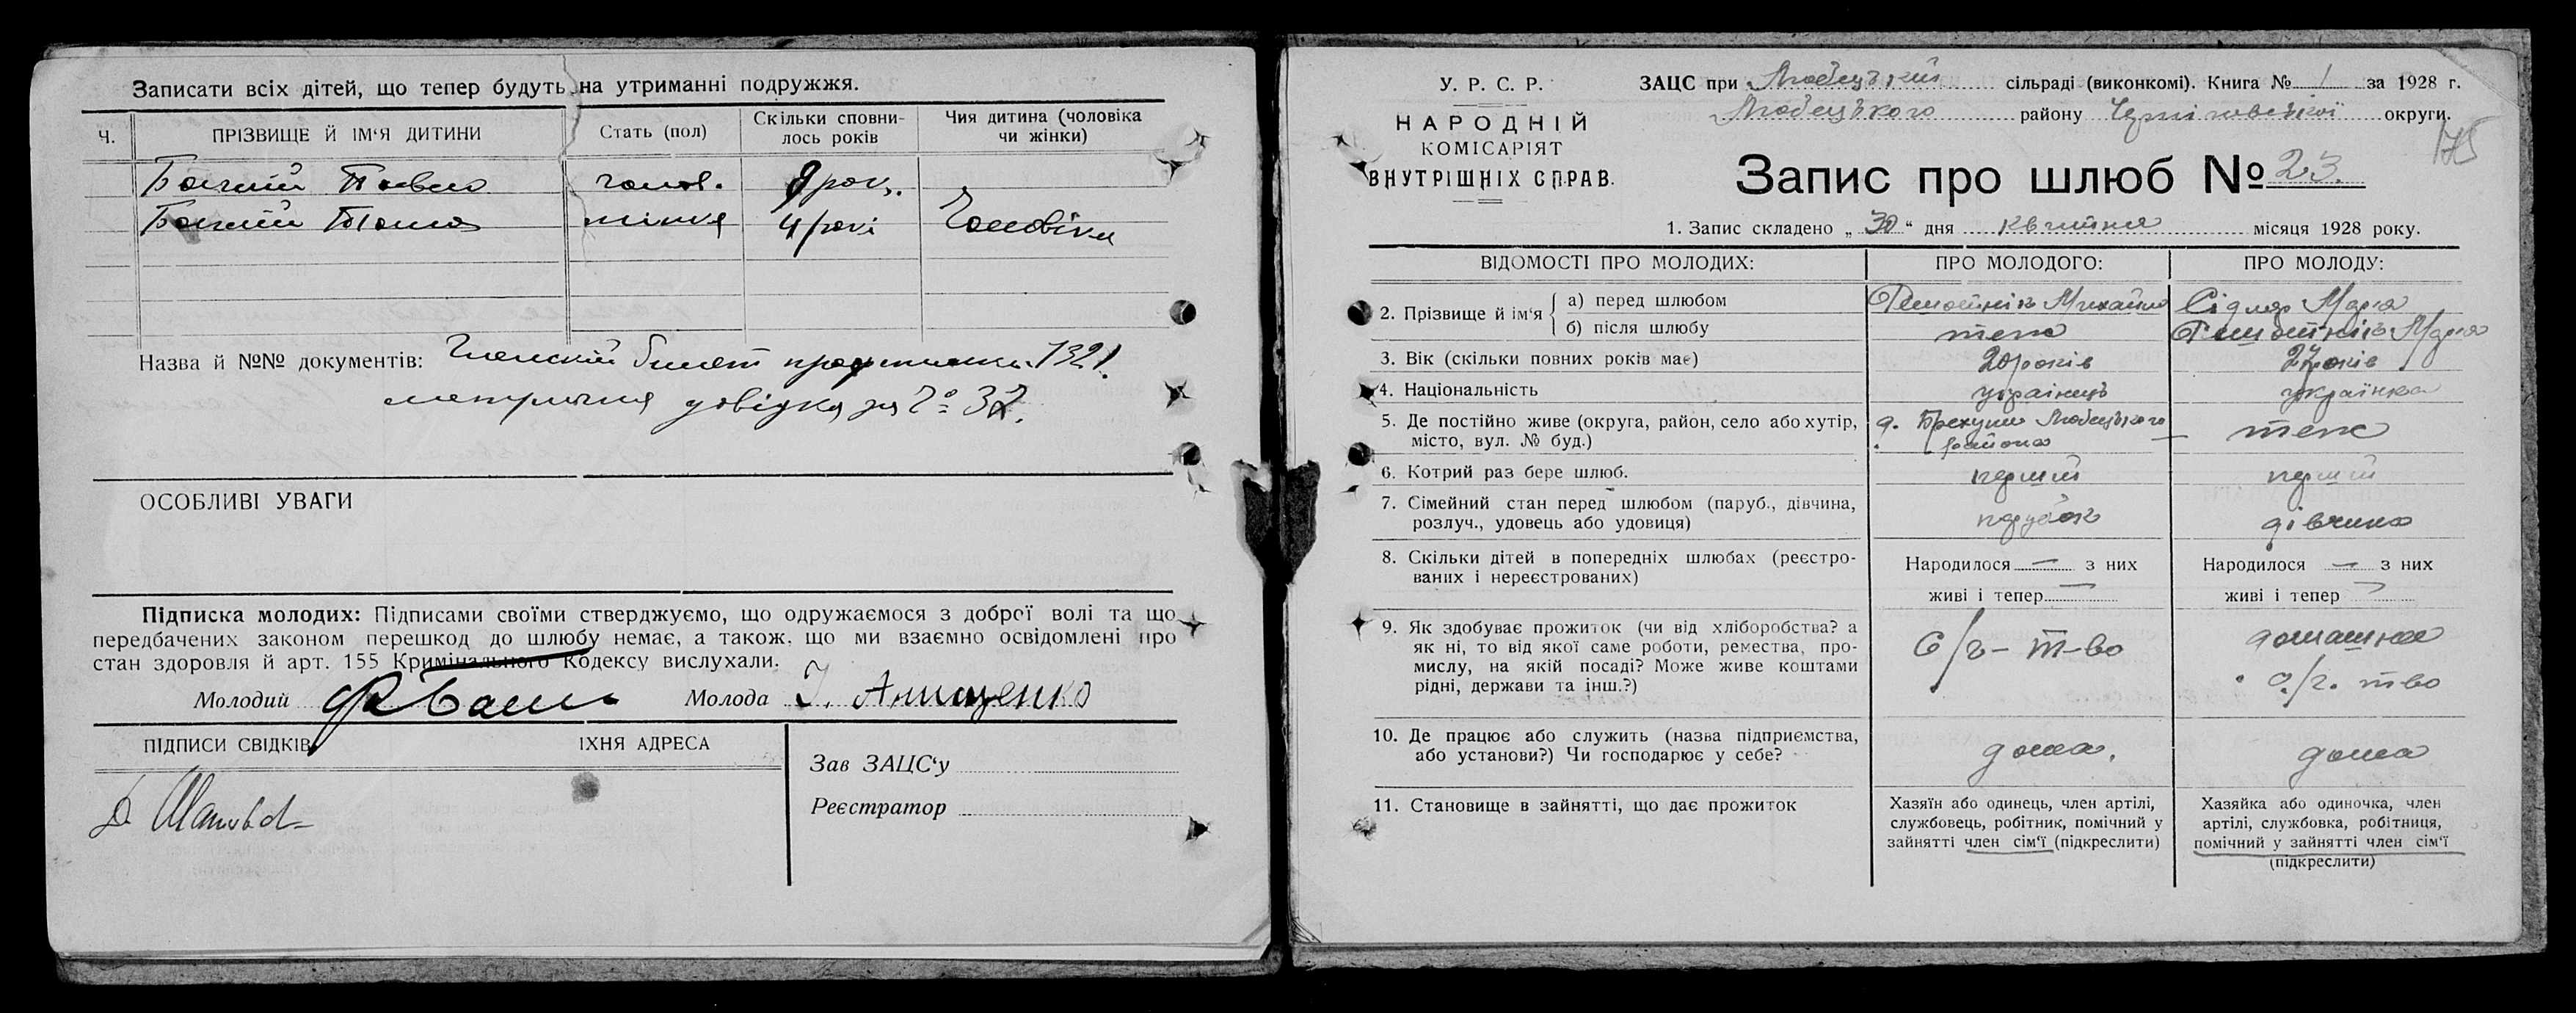 Записати всіх дітей, що тепер будуть на утриманні подружжя.
Ч.
ПРІЗВИЩЕ Й ІМ‘Я ДИТИНИ
Стать (пол)
Скільки сповни-
лось років
Чия дитина (чоловіка
чи жінки)
Павло
4 роки
Чоловіка
Назва й №№ документів:
білет 1321.
довідка за № 32.
ОСОБЛИВІ УВАГИ
Підписка молодих: Підписами своїми стверджуємо, що одружаємося з доброї волі та що
передбачених законом перешкод до шлюбу немає, а також, що ми взаємно освідомлені про
стан здоровля й арт. 155 Кримінального Кодексу вислухали.
Молодий
Молода
ПІДПИСИ СВІДКІВ
ІХНЯ АДРЕСА
Зав ЗАЦС‘у
Реєстратор
У. Р. С. Р.
НАРОДНІЙ
КОМІСАРІЯТ
ВНУТРІШНІХ СПРАВ.
ЗАЦС при Любецькій сільраді (виконкомі). Книга № 1 за 1928 г.
Любецького району Чернігівської округи.
175
Запис про шлюб № 23.
1. Запис складено „30“ дня квітня місяця 1928 року.
ВІДОМОСТІ ПРО МОЛОДИХ:
ПРО МОЛОДОГО:
ПРО МОЛОДУ:
2. Прізвище й ім‘я
а) перед шлюбом
Михайло
Марія
б) після шлюбу
теж
Марія
3. Вік (скільки повних років має)
20 років
27 років
4. Національність
українець
українка
5. Де постійно живе (округа, район, село або хутір,
місто, вул. № буд.)
Любецького
района
теж
6. Котрий раз бере шлюб.
перший
перший
7. Сімейний стан перед шлюбом (паруб., дівчина,
розлуч., удовець або удовиця)
парубок
дівчина
8. Скільки дітей в попередніх шлюбах (реєстро-
ваних і нереєстрованих)
Народилося — з них
живі і тепер —
Народилося — з них
живі і тепер —
9. Як здобуває прожиток (чи від хліборобства? а
як ні, то від якої саме роботи, ремества, про-
мислу, на якій посаді? Може живе коштами
рідні, держави та інш.?)
С/г-т-во
домашнє
с./г. тво
10. Де працює або служить (назва підприємства,
або установи?) Чи господарює у себе?
дома.
дома
11. Становище в зайнятті, що дає прожиток
Хазяїн або одинець, член артілі,
службовець, робітник, помічний у
зайнятті член сім‘ї (підкреслити)
Хазяйка або одиночка, член
артілі, службовка, робітниця,
помічний у зайнятті член сім‘ї
(підкреслити)